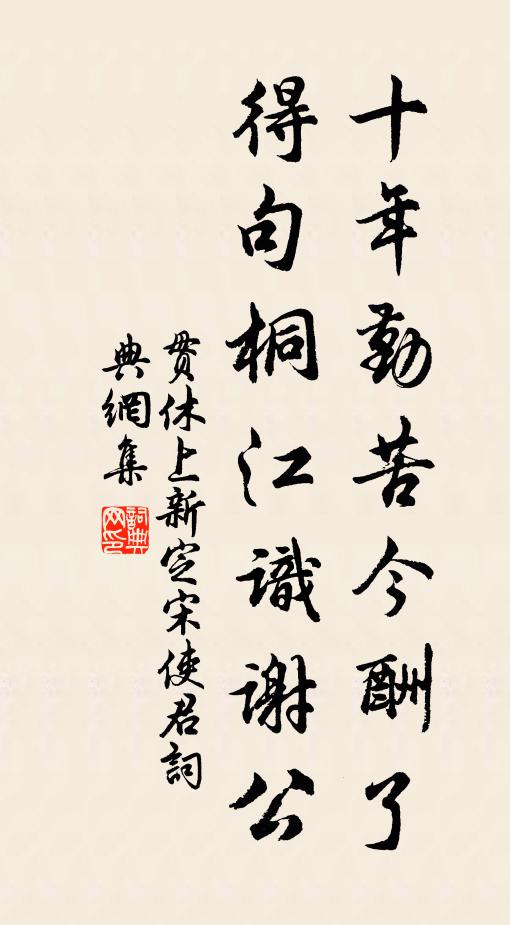 十年勤苦今酬了
得句桐江識謝公
貫休上新定宋使君詞
典網集
詞典網印